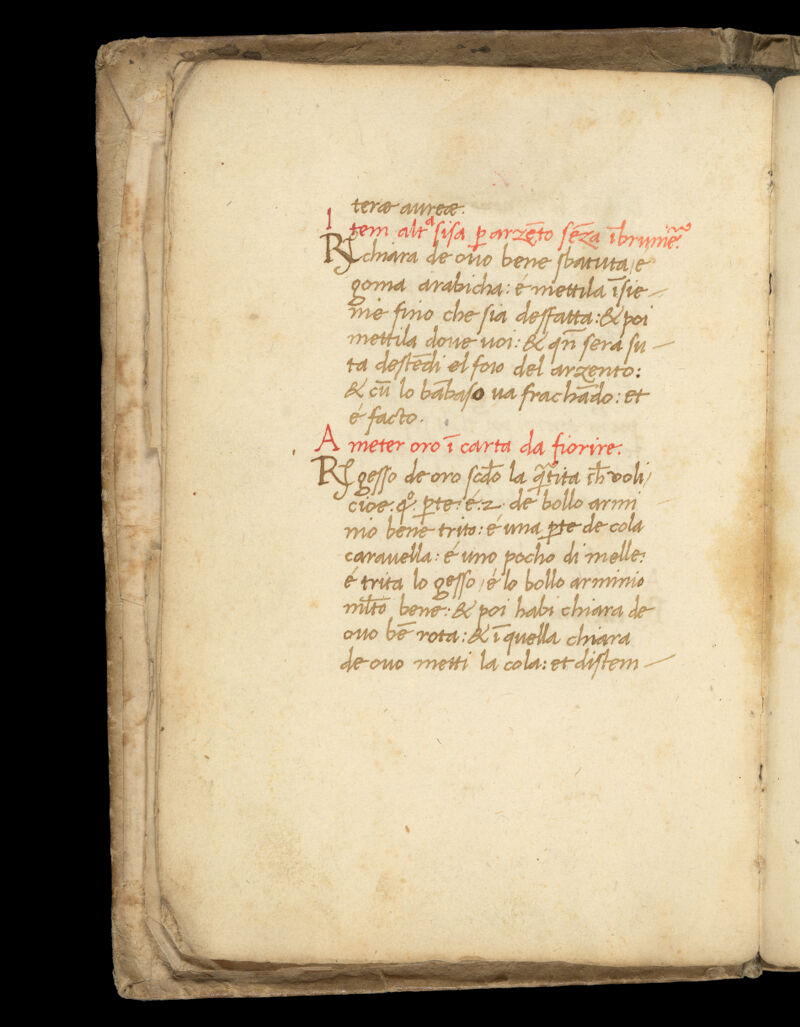 teræ aureæ.
Item altª sisa ꝑ arzēto sēza ībrunimē.
℞ chiara de ouo bene sbatuta / e
goma arabicha: é mettila īsie-
me fino che sia desfatta: & poi
mettila doue uoi: & qn̄ sera su-
ta destēdi el foio del arzento:
& cū lo bābaso ua frachādo: et
é facto.
A meter oro ī carta da fiorire.
℞ gesso de oro scd̄o la q̄tita ch̄ voli/
cioe: qº. ꝑte: é: 2. de bollo armi
nio bene trito: é una ꝑte de cola
carauella: é uno pocho di melle:
é trita lo gesso / é lo bollo arminio
ml̄to bene: & poi habi chiara de
ouo bē rota: & ī quella chiara
de ouo metti la cola: et distem-